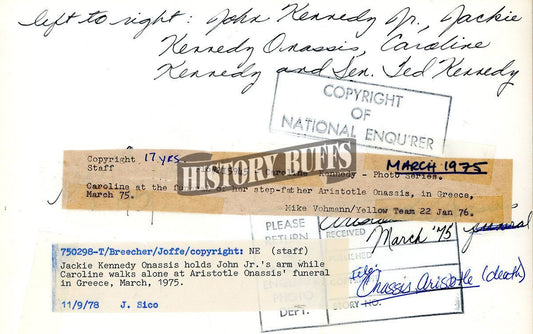 left to right: John Kennedy Jr., Jackie
Kennedy Onassis, Caroline
Kennedy and Sen. Ted Kennedy
COPYRIGHT
OF
NATIONAL ENQU'RER
Copyright 17 yrs.
Staff
HISTORY BUFFS
Caroline Kennedy - Photo Series.
MARCH 1975
Caroline at the her step-father Aristotle Onassis, in Greece,
March 75.
Mike Vohmann/Yellow Team 22 Jan 76.
funeral
March '75
PLEASE
RETURN
RECEIVED
DEPT.
750298-T/Breecher/Joffe/copyright: NE (staff)
Jackie Kennedy Onassis holds John Jr.'s arm while
Caroline walks alone at Aristotle Onassis' funeral
in Greece, March, 1975.
11/9/78 J. Sico
File:
Onassis Aristotle (death)